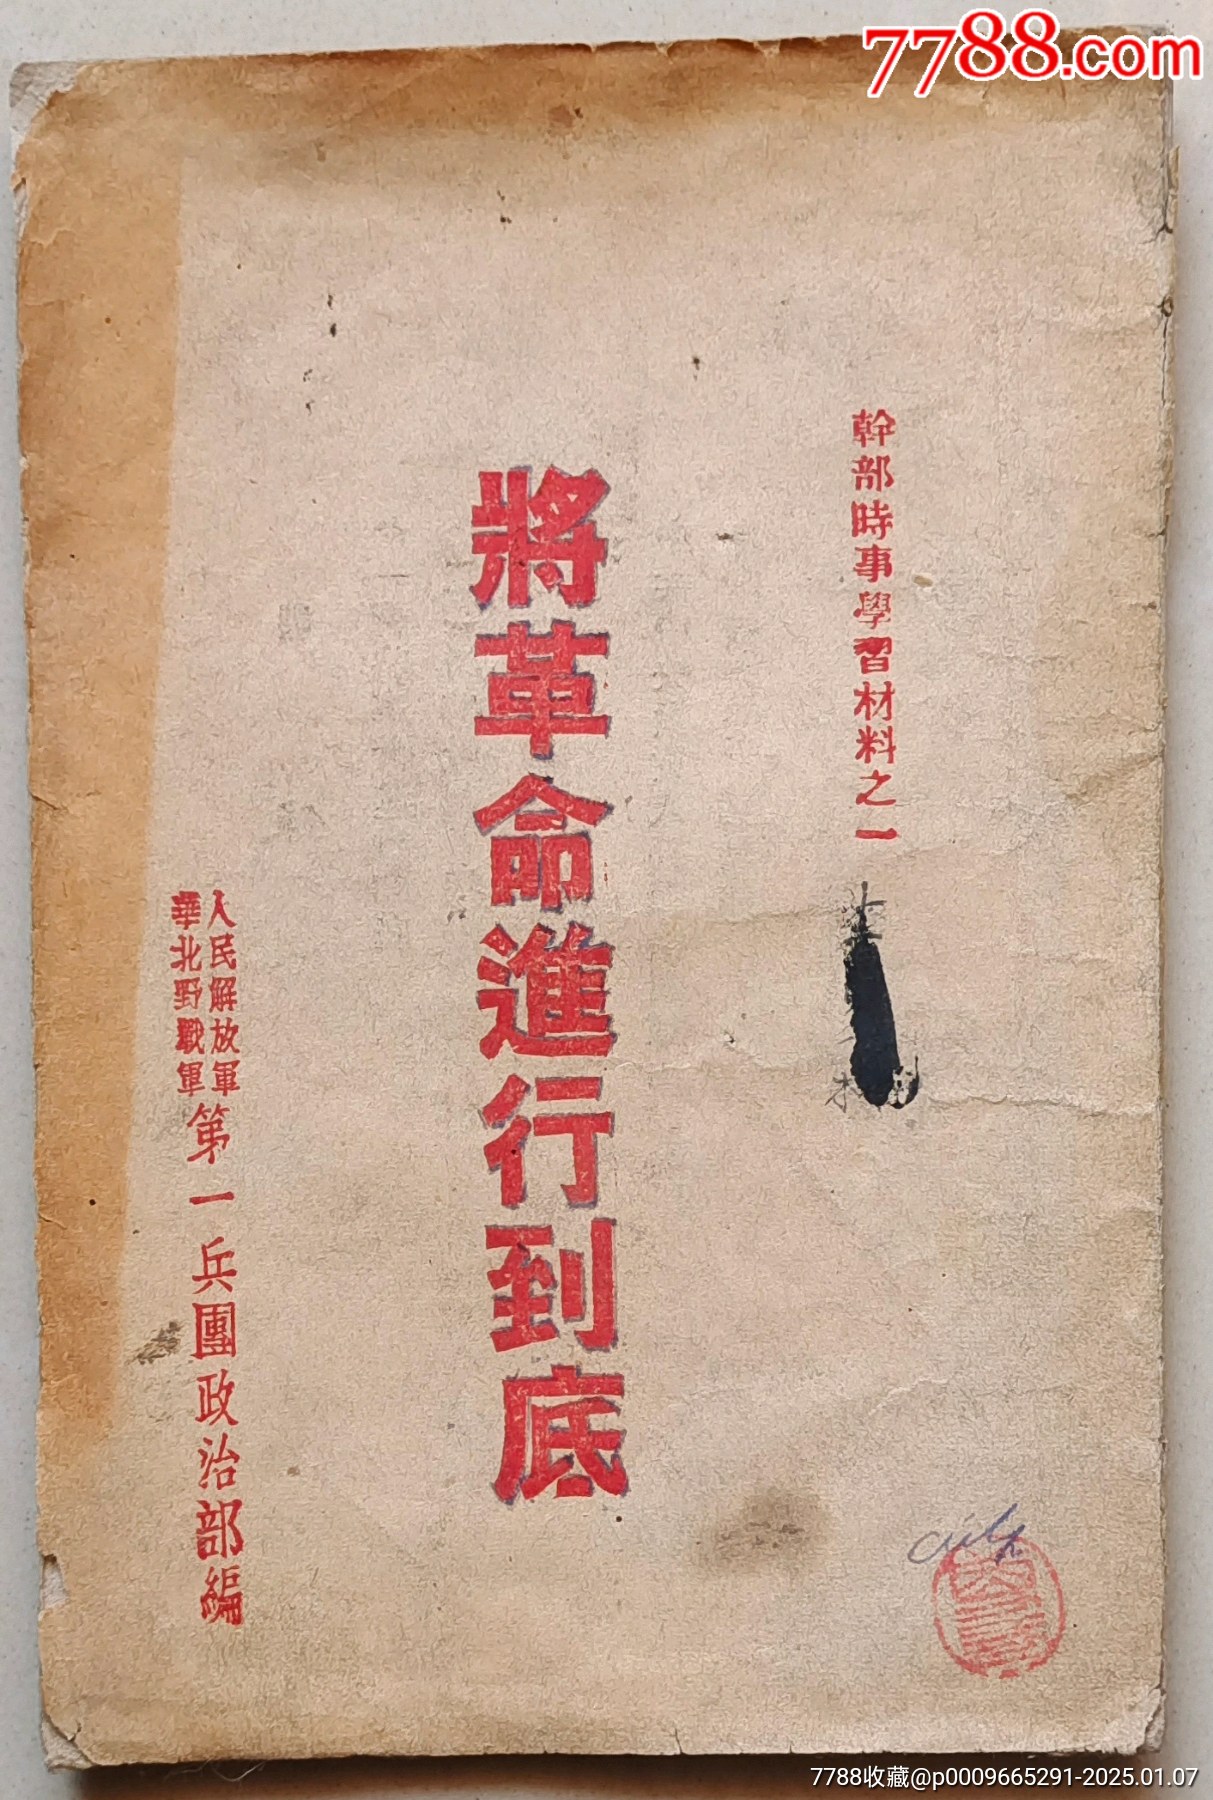 7788.com
幹部時事學習材料之一
將革命進行到底
人民解放軍
華北野戰軍
第一兵團政治部編
7788收藏@p0009665291-2025.01.07